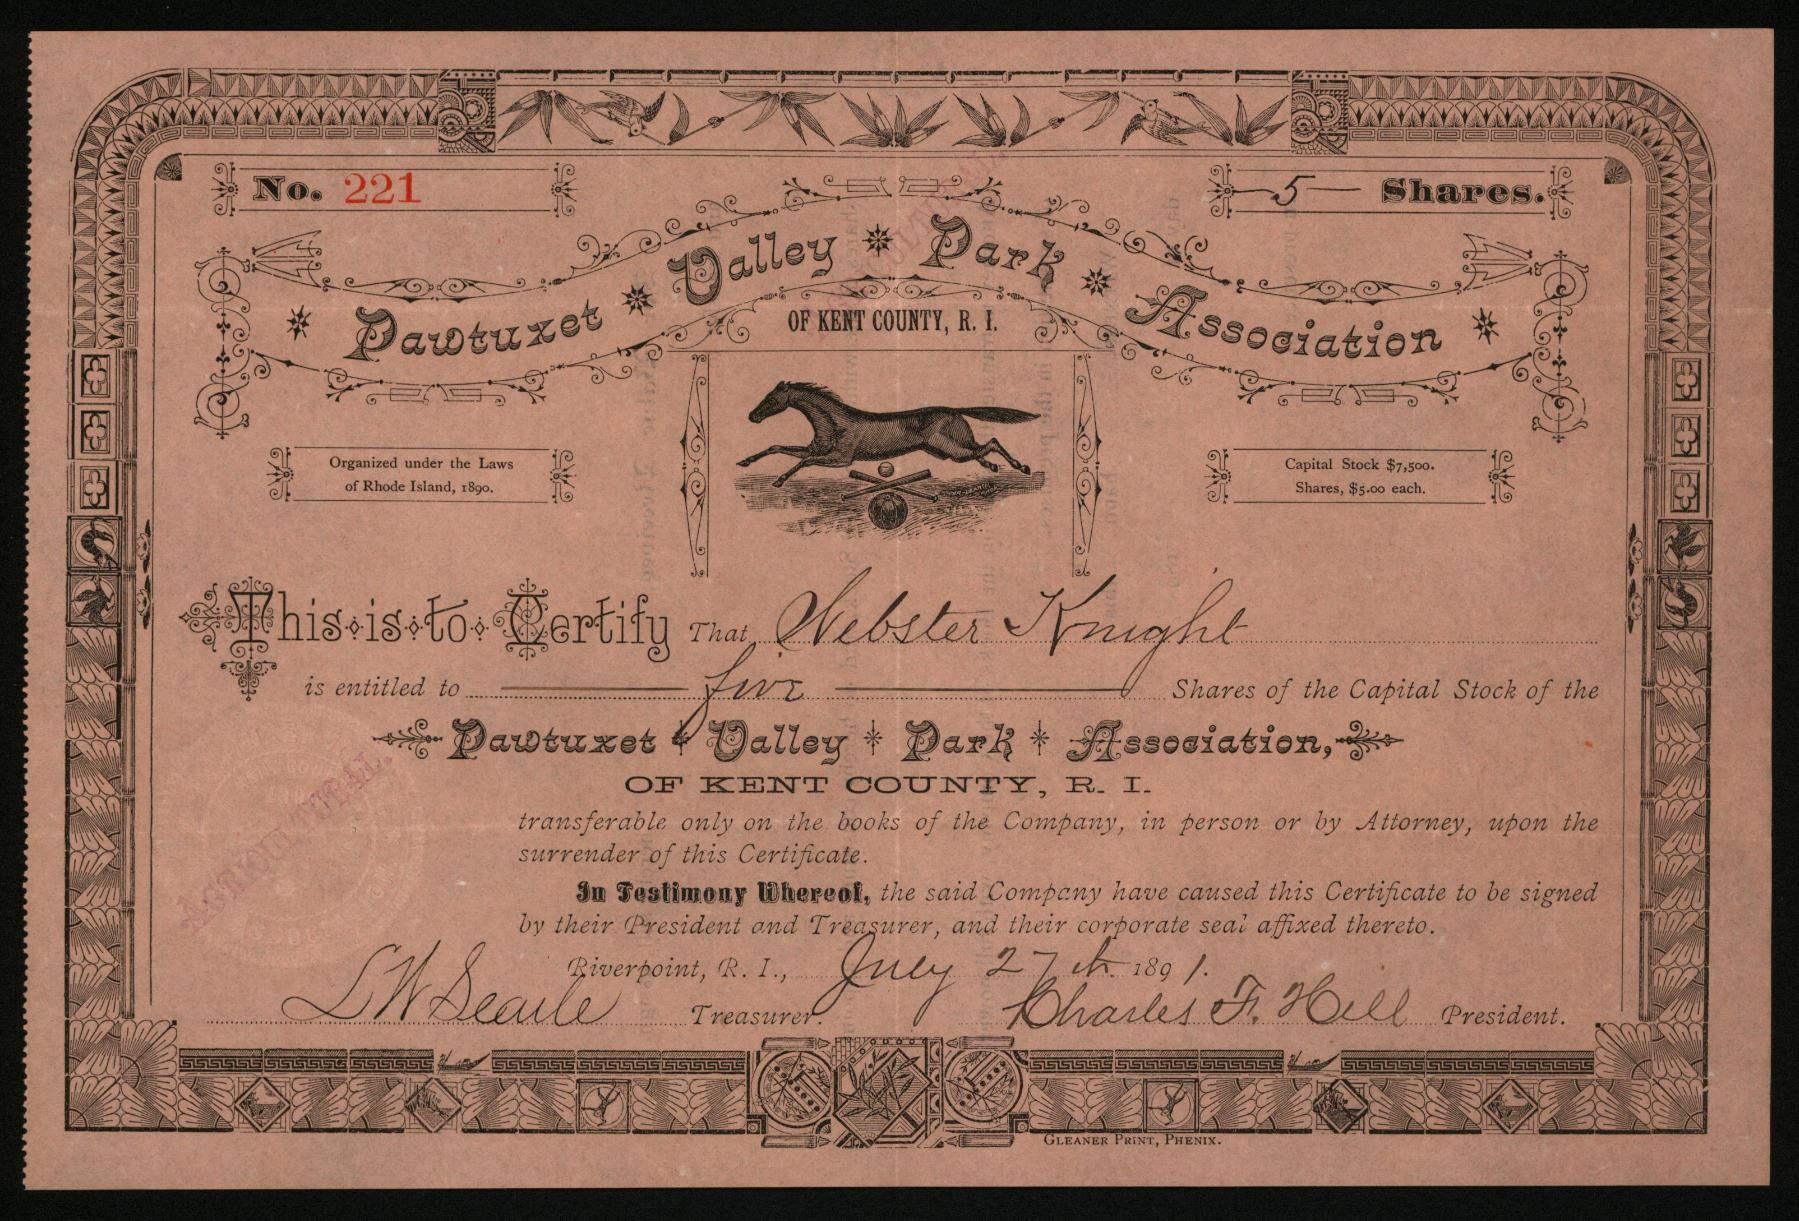 No. 221
5 Shares.
Pawtuxet Valley Park Association
OF KENT COUNTY, R. I.
Organized under the Laws
of Rhode Island, 1890.
Capital Stock $7,500.
Shares, $5.00 each.
This is to Certify That Webster Knight
is entitled to five Shares of the Capital Stock of the
Pawtuxet Valley Park Association,
OF KENT COUNTY, R. I.
transferable only on the books of the Company, in person or by Attorney, upon the
surrender of this Certificate.
In Testimony Whereof, the said Company have caused this Certificate to be signed
by their President and Treasurer, and their corporate seal affixed thereto.
AGRICULTURAL.
Riverpoint, R. I., July 27th 1891.
L W Searle Treasurer.
Charles F. Hill President.
GLEANER PRINT, PHENIX.